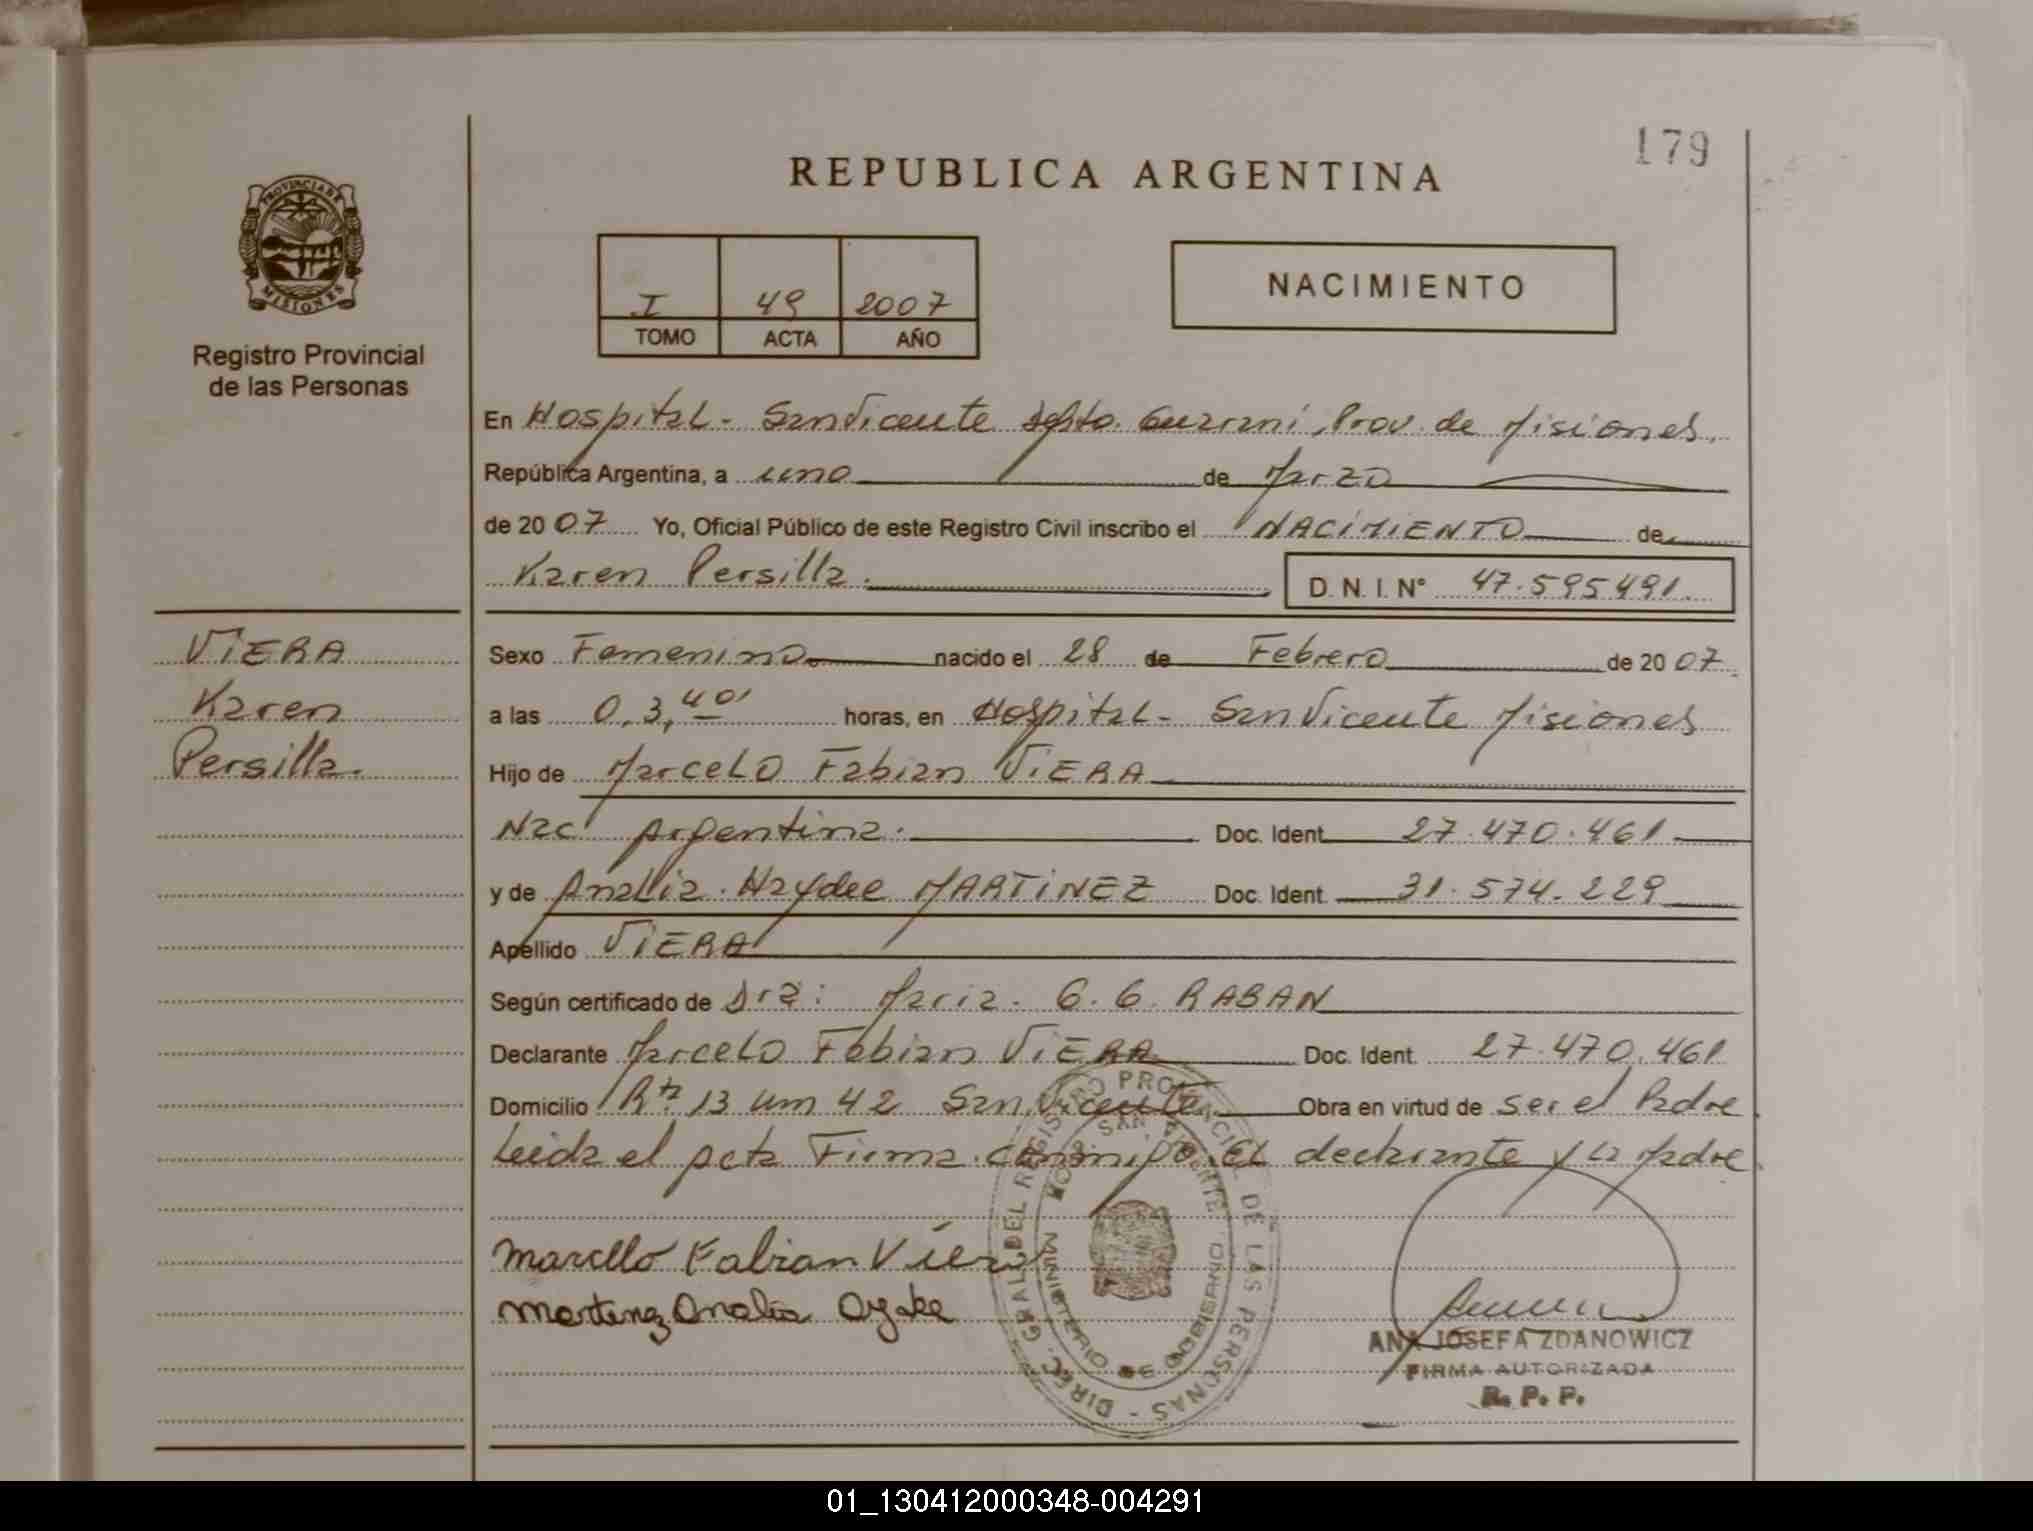 179
REPUBLICA ARGENTINA
PROVINCIA DE
MISIONES
Registro Provincial
de las Personas
I 49 2007
TOMO ACTA AÑO
NACIMIENTO
En Hospital - San Vicente Dpto. Guarani, Prov. de Misiones.
República Argentina, a uno de Marzo
de 2007 Yo, Oficial Público de este Registro Civil inscribo el NACIMIENTO de
Karen Persilla. D.N.I. N° 47.595491.
VIERA
Karen
Persilla.
Sexo Femenino nacido el 28 de Febrero de 2007.
a las 0,3,40' horas, en Hospital - San Vicente Misiones
Hijo de Marcelo Fabian VIERA
Nac. Argentina. Doc. Ident. 27.470.461
y de Analia Haydee MARTINEZ Doc. Ident. 31.574.229
Apellido VIERA
Según certificado de Dra: Maria. G. G. RABAN
Declarante Marcelo Fabian VIERA Doc. Ident. 27.470.461
Domicilio Rta. 13 Km 42 San Vicente. Obra en virtud de ser el Padre
Leida el acta Firma conmigo el declarante y la Madre.
Marcelo Fabian Viera
Martinez Analia
DIREC. GRAL DEL REGISTRO PROVINCIAL DE LAS PERSONAS -
HOSP. SAN VICENTE
MINISTERIO DE GOBIERNO
ANA JOSEFA ZDANOWICZ
FIRMA AUTORIZADA
R. P. P.
01_130412000348-004291